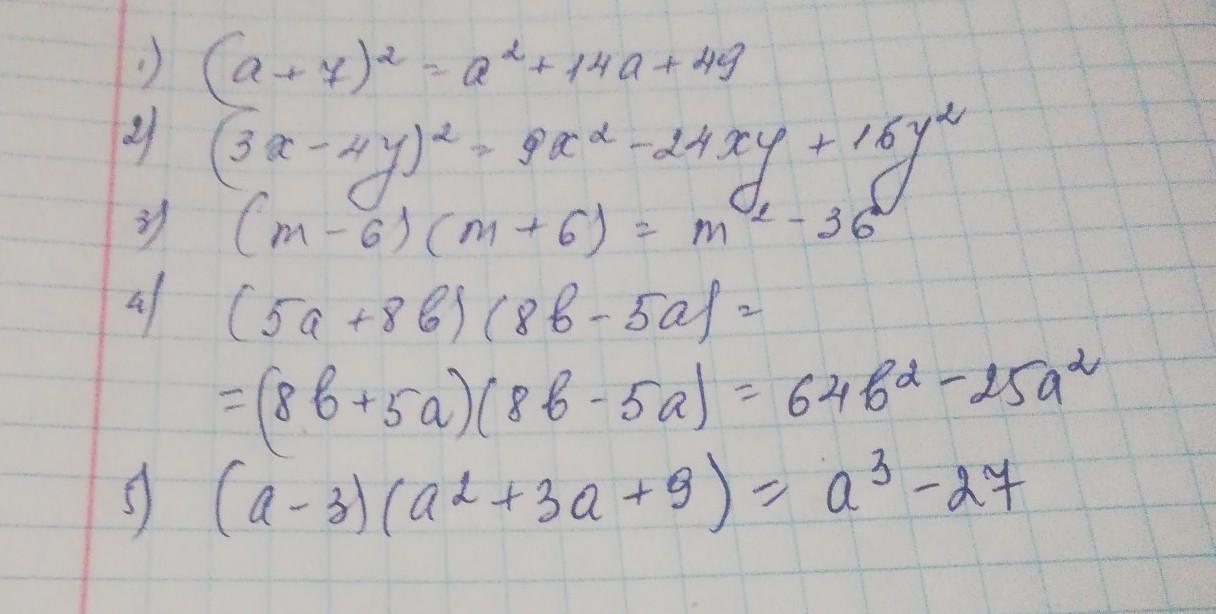 1) (a+7)² = a²+14a+49
2) (3x-4y)² = 9x²-24xy+16y²
3) (m-6)(m+6) = m²-36
4) (5a+8b)(8b-5a) =
=(8b+5a)(8b-5a) = 64b²-25a²
5) (a-3)(a²+3a+9) = a³-27